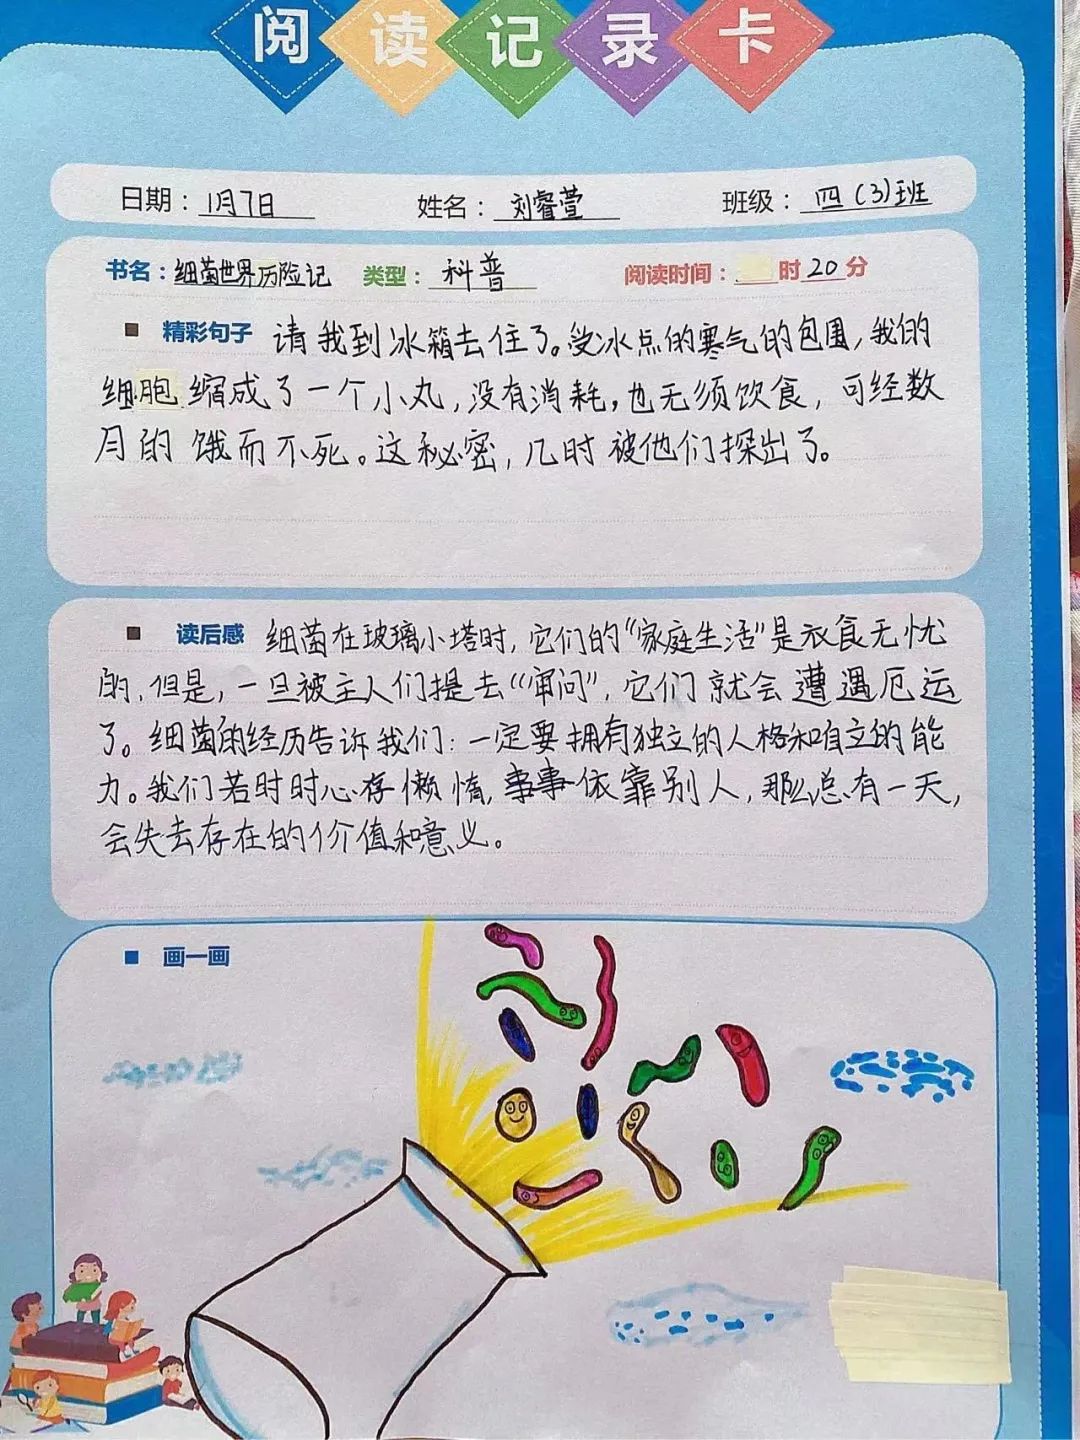 阅读记录卡
日期：1月7日 姓名：刘睿萱 班级：四（3）班
书名：细菌世界历险记 类型：科普 阅读时间：时20分
精彩句子 请我到冰箱去住了。受冰点的寒气的包围，我的
细胞缩成了一个小丸，没有消耗，也无须饮食，可经数
月的饿而不死。这秘密，几时被他们探出了。
读后感 细菌在玻璃小塔时，它们的“家庭生活”是衣食无忧
的，但是，一旦被主人们提去“审问”，它们就会遭遇厄运
了。细菌的经历告诉我们：一定要拥有独立的人格和自立的能
力。我们若时时心存懒惰，事事依靠别人，那么总有一天，
会失去存在的价值和意义。
画一画